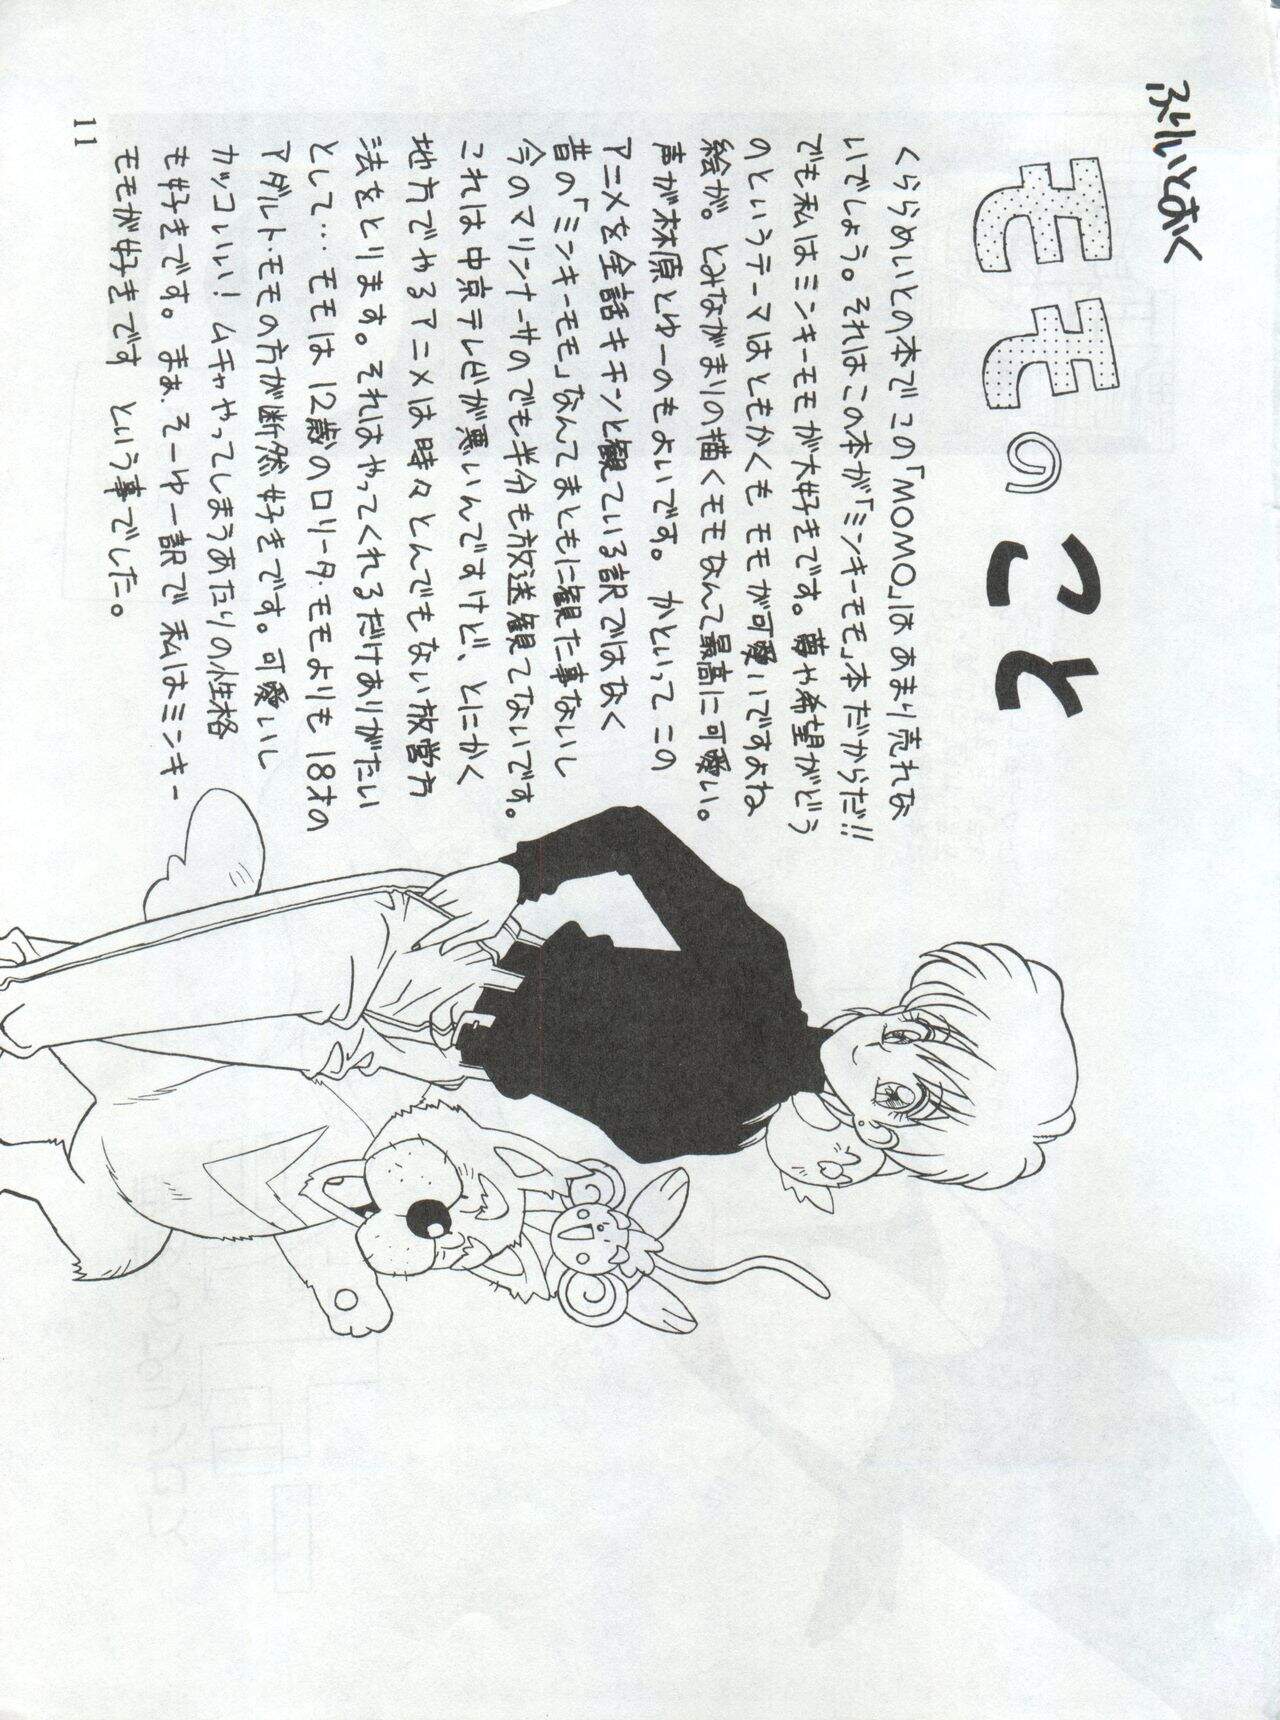 ふりいとおく
モモのこと
くららめいとの本でこの「MOMO」はあまり売れな
いでしょう。それはこの本が「ミンキーモモ」本だからだ!!
でも私はミンキーモモが大好きです。夢や希望がどう
のというテーマはともかくも モモが可愛いですよね
絵が。とみながまりの描くモモなんて最高に可愛い。
声が林原とゆーのもよいです。かといって この
アニメを全話キチンと観ている訳ではなく
昔の「ミンキーモモ」なんてまともに観た事ないし
今のマリンナーサのでも半分も放送観てないです。
これは中京テレビが悪いんですけど、とにかく
地方でやるアニメは時々とんでもない放営方
法をとります。それはやってくれるだけありがたい
として… モモは12歳のロリータ・モモよりも 18才の
アダルト・モモの方が断然好きです。可愛いし
カッコいい! ムチャやってしまうあたりの性格
も好きです。まぁ、そーゆー訳で 私はミンキー
モモが好きです という事でした。
11